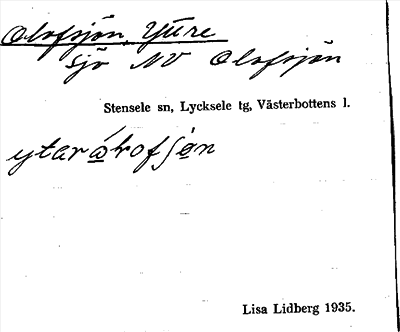 Olofsjön, Yttre
sjö NV Olofsjön
Stensele sn, Lycksele tg, Västerbottens l.
Lisa Lidberg 1935.